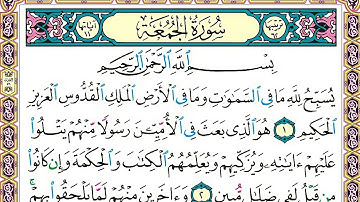 سُورَةُ الْجُمُعَةِ
بِسْمِ ٱللَّهِ ٱلرَّحْمَٰنِ ٱلرَّحِيمِ
يُسَبِّحُ لِلَّهِ مَا فِى ٱلسَّمَٰوَٰتِ وَمَا فِى ٱلْأَرْضِ ٱلْمَلِكِ ٱلْقُدُّوسِ ٱلْعَزِيزِ
ٱلْحَكِيمِ ۝١ هُوَ ٱلَّذِى بَعَثَ فِى ٱلْأُمِّيِّـۧنَ رَسُولًا مِّنْهُمْ يَتْلُوا۟
عَلَيْهِمْ ءَايَٰتِهِۦ وَيُزَكِّيهِمْ وَيُعَلِّمُهُمُ ٱلْكِتَٰبَ وَٱلْحِكْمَةَ وَإِن كَانُوا۟
مِن قَبْلُ لَفِى ضَلَٰلٍ مُّبِينٍ ۝٢ وَءَاخَرِينَ مِنْهُمْ لَمَّا يَلْحَقُوا۟ بِهِمْ ۚ